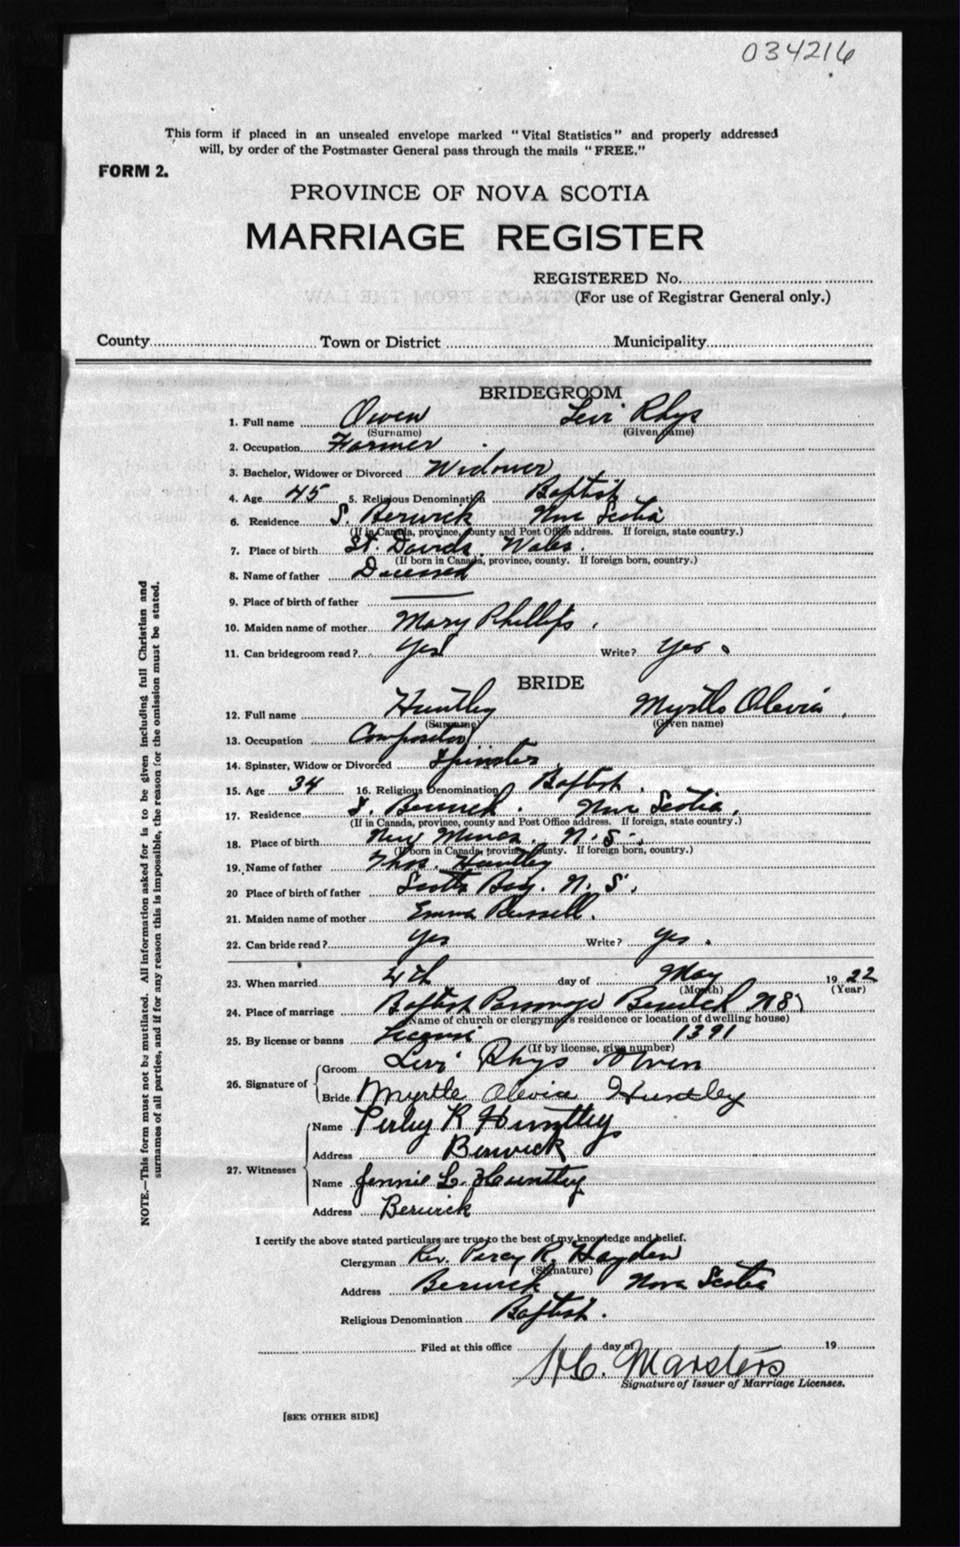 034216
This form if placed in an unsealed envelope marked "Vital Statistics" and properly addressed
will, by order of the Postmaster General pass through the mails "FREE."
FORM 2.
PROVINCE OF NOVA SCOTIA
MARRIAGE REGISTER
REGISTERED No.
(For use of Registrar General only.)
County Town or District Municipality
BRIDEGROOM
1. Full name Owen Levi Rhys
(Surname) (Given name)
2. Occupation Farmer
3. Bachelor, Widower or Divorced Widower
4. Age 45 5. Religious Denomination Baptist
6. Residence S. Berwick Nova Scotia
(If in Canada, province, county and Post Office address. If foreign, state country.)
7. Place of birth St. Davids. Wales.
(If born in Canada, province, county. If foreign born, country.)
8. Name of father Deceased
9. Place of birth of father
10. Maiden name of mother Mary Phillips.
11. Can bridegroom read? Yes Write? Yes.
BRIDE
12. Full name Huntley Myrtle Olevia.
(Surname) (Given name)
13. Occupation Compositor
14. Spinster, Widow or Divorced Spinster
15. Age 34 16. Religious Denomination Baptist.
17. Residence S. Berwick. Nova Scotia,
(If in Canada, province, county and Post Office address. If foreign, state country.)
18. Place of birth New Minas, N. S.
(If born in Canada, province, county. If foreign born, country.)
19. Name of father Thos. Huntley
20 Place of birth of father Scotts Bay. N. S.
21. Maiden name of mother Emma Russell.
22. Can bride read? Yes Write? Yes.
23. When married 4th day of May 1922
(Month) (Year)
24. Place of marriage Baptist Parsonage Berwick N S
(Name of church or clergyman's residence or location of dwelling house)
25. By license or banns License 1391
(If by license, give number)
26. Signature of Groom Levi Rhys Owen
Bride Myrtle Olevia Huntley
27. Witnesses
Name Perley R Huntley
Address Berwick
Name Jennie L. Huntley
Address Berwick
I certify the above stated particulars are true to the best of my knowledge and belief.
Clergyman Rev. Percy R. Hayden
(Signature)
Address Berwick Nova Scotia
Religious Denomination Baptist.
Filed at this office day of 19
H.C. Marsters
Signature of Issuer of Marriage Licenses.
[SEE OTHER SIDE]
NOTE.—This form must not be mutilated. All information asked for is to be given including full Christian and
surnames of all parties, and if for any reason this is impossible, the reason for the omission must be stated.